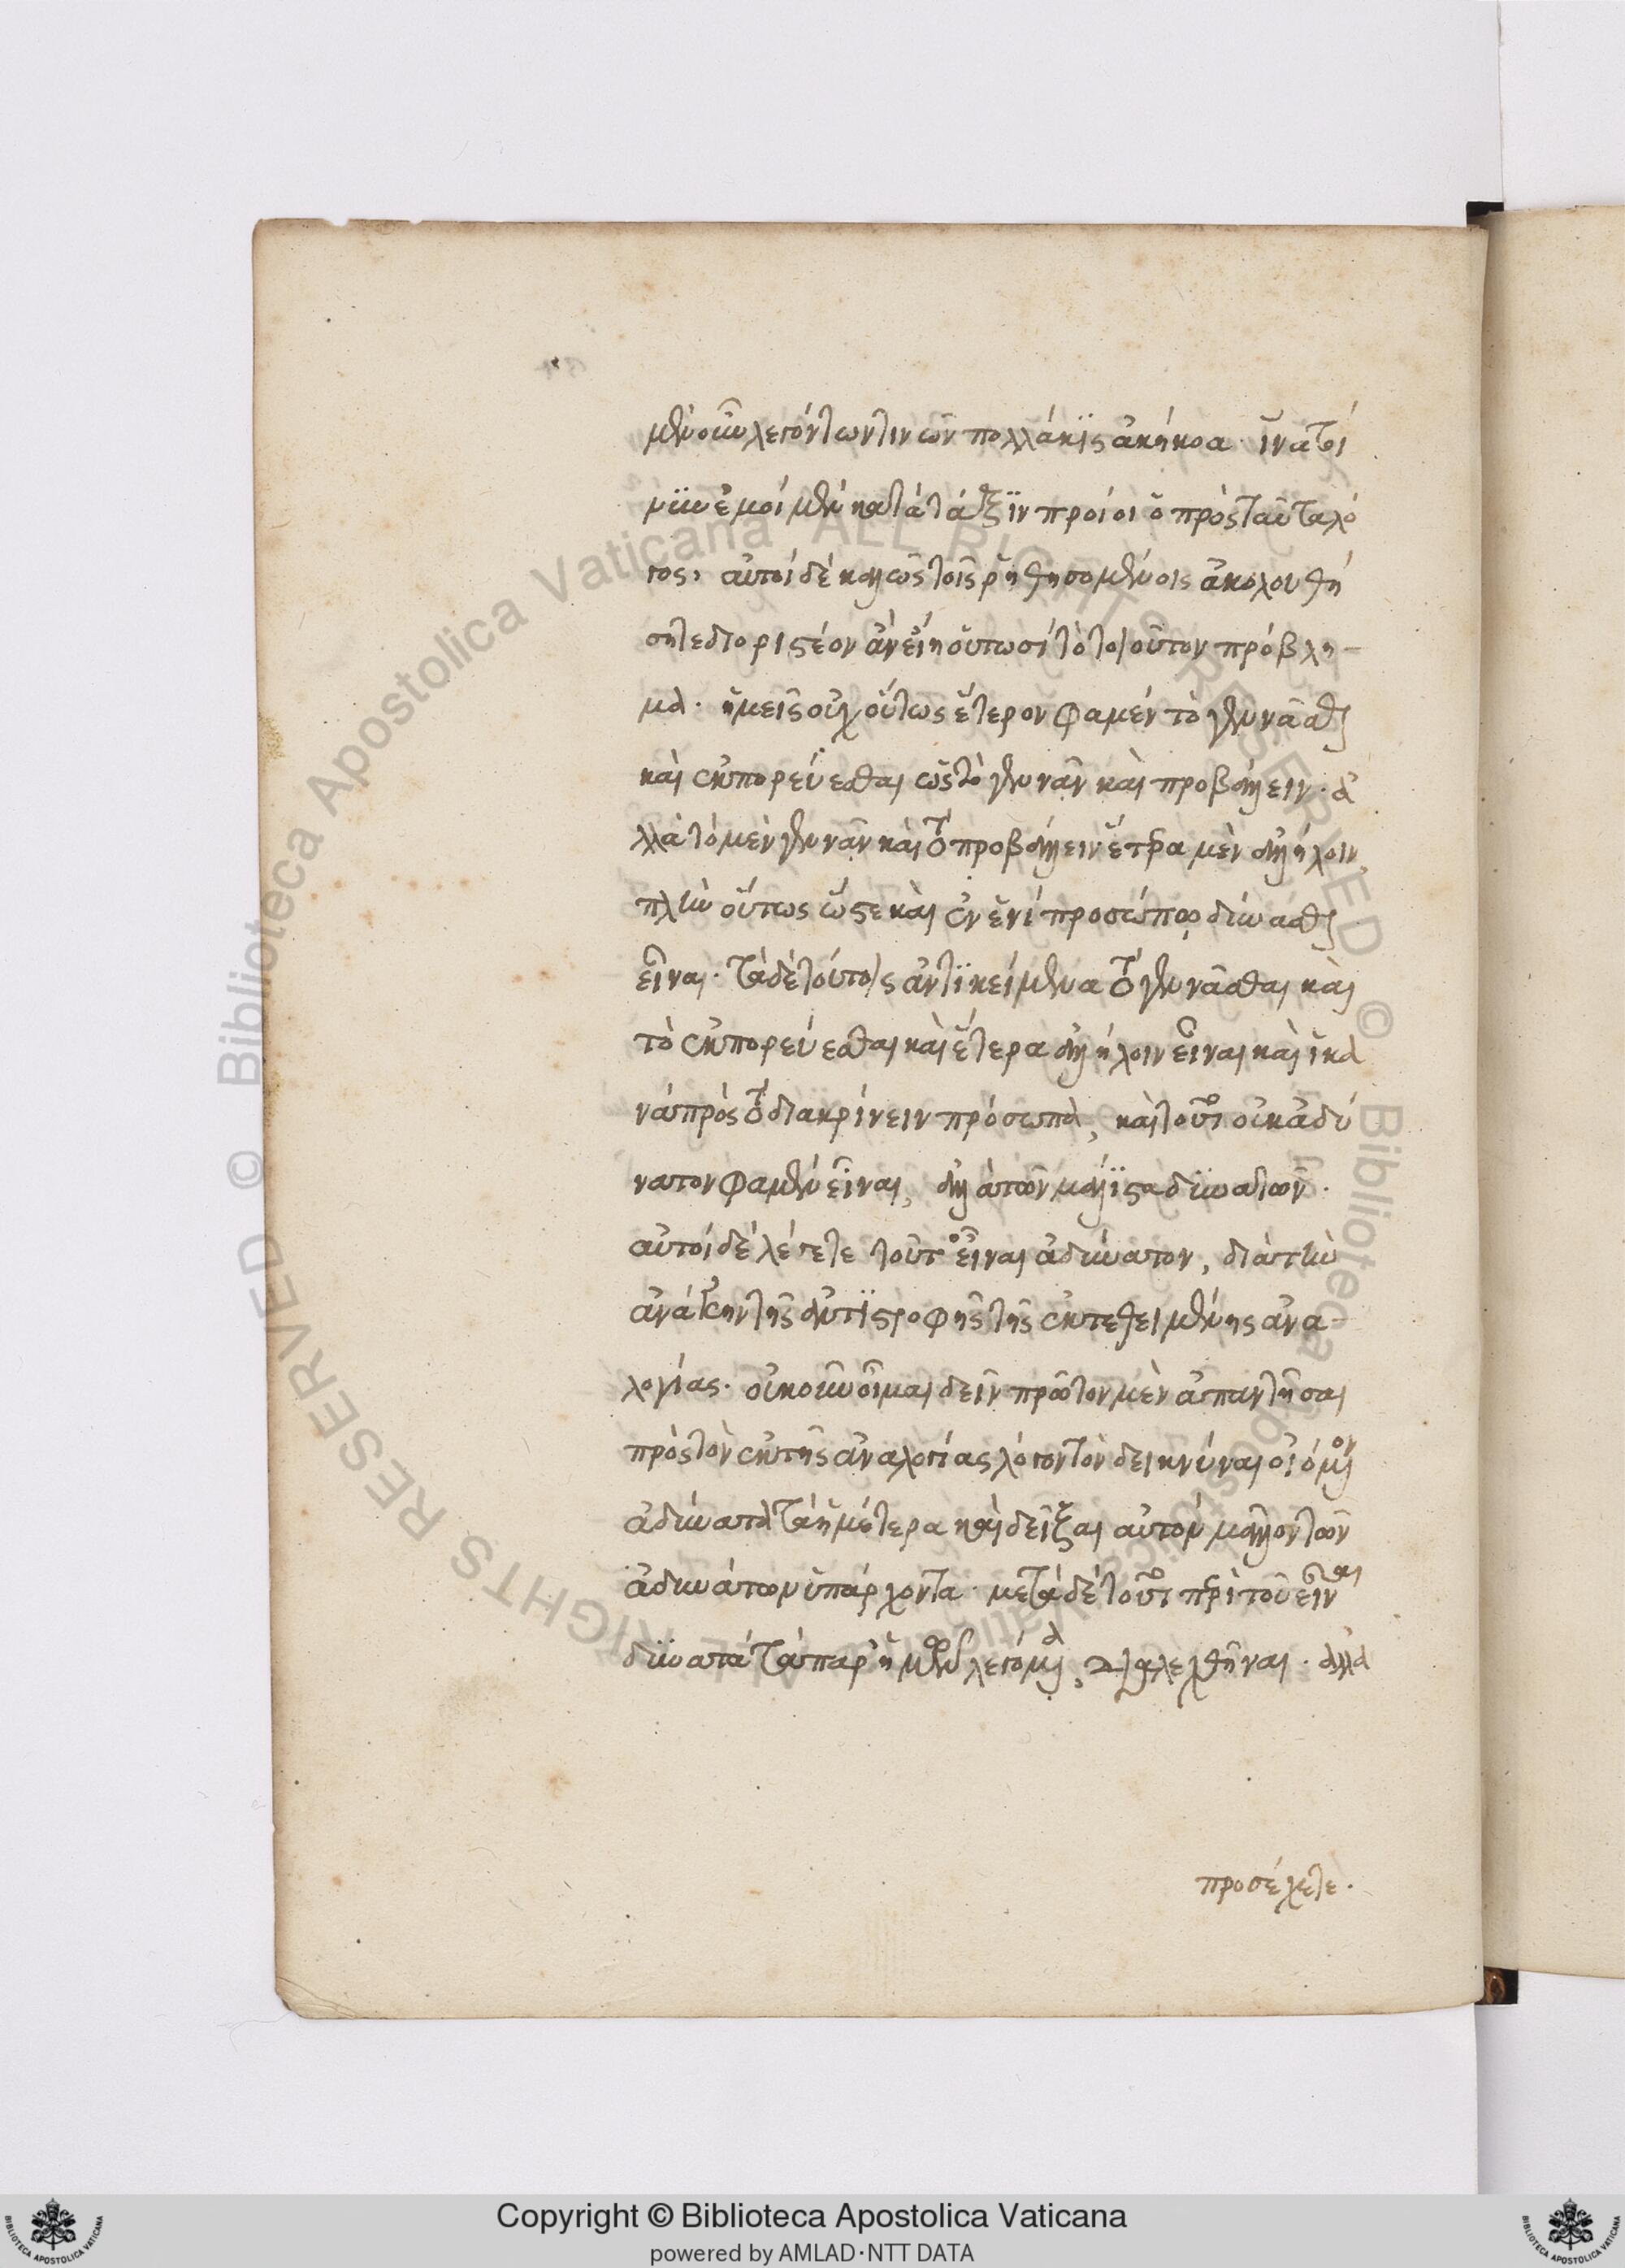 μὲν οὖν λεγόντων τινῶν πολλάκις ἀκήκοα· ἵνα τοί
νυν ἐμοὶ μὲν κατὰ τάξιν προίοι ὁ πρὸς ταῦτα λό
γος, αὐτοὶ δὲ καλῶς τοῖς ῥηθησομένοις ἀκολουθή
σητε διοριστέον ἂν εἴη οὑτωσὶ τὸ τοιοῦτον πρόβλη-
μα. ἡμεῖς οὐχ οὕτως ἕτερον φαμὲν τὸ γεννᾶσθαι
καὶ ἐκπορεύεσθαι ὡς τὸ γεννᾶν καὶ προβάλλειν· ἀ
λλὰ τὸ μὲν γεννᾶν καὶ τὸ προβάλλειν ἕτερα μὲν ἀλλήλοιν,
πλὴν οὕτως ὥστε καὶ ἐν ἑνὶ προσώπῳ δύνασθαι
εἶναι· τὰ δὲ τούτοις ἀντικείμενα τὸ γεννᾶσθαι καὶ
τὸ ἐκπορεύεσθαι καὶ ἕτερα ἀλλήλοιν εἶναι καὶ ἱκα
νὰ πρὸς τὸ διακρίνειν πρόσωπα, καὶ τοῦτο οὐκ ἀδύ
νατον φαμὲν εἶναι, ἀλλὰ τῶν μάλιστα δυνατῶν.
αὐτοὶ δὲ λέγετε τοῦτο εἶναι ἀδύνατον, διὰ τὴν
ἀνάγκην τῆς ἀντιστροφῆς τῆς ἐκτεθειμένης ἀνα-
λογίας. οὐκοῦν οἶμαι δεῖν πρῶτον μὲν ἀπαντῆσαι
πρὸς τὸν ἐκ τῆς ἀναλογίας λόγον τὸν δεικνύναι οἰόμενον
ἀδύνατα τὰ ἡμέτερα καὶ δεῖξαι αὐτὸν μᾶλλον τῶν
ἀδυνάτων ὑπάρχοντα· μετὰ δὲ τοῦτο περὶ τοῦ εἶναι
δυνατὰ τὰ παρ' ἡμῶν λεγόμενα, διαλεχθῆναι. ἀλλὰ
προσέχετε.
Copyright © Biblioteca Apostolica Vaticana
powered by AMLAD·NTT DATA